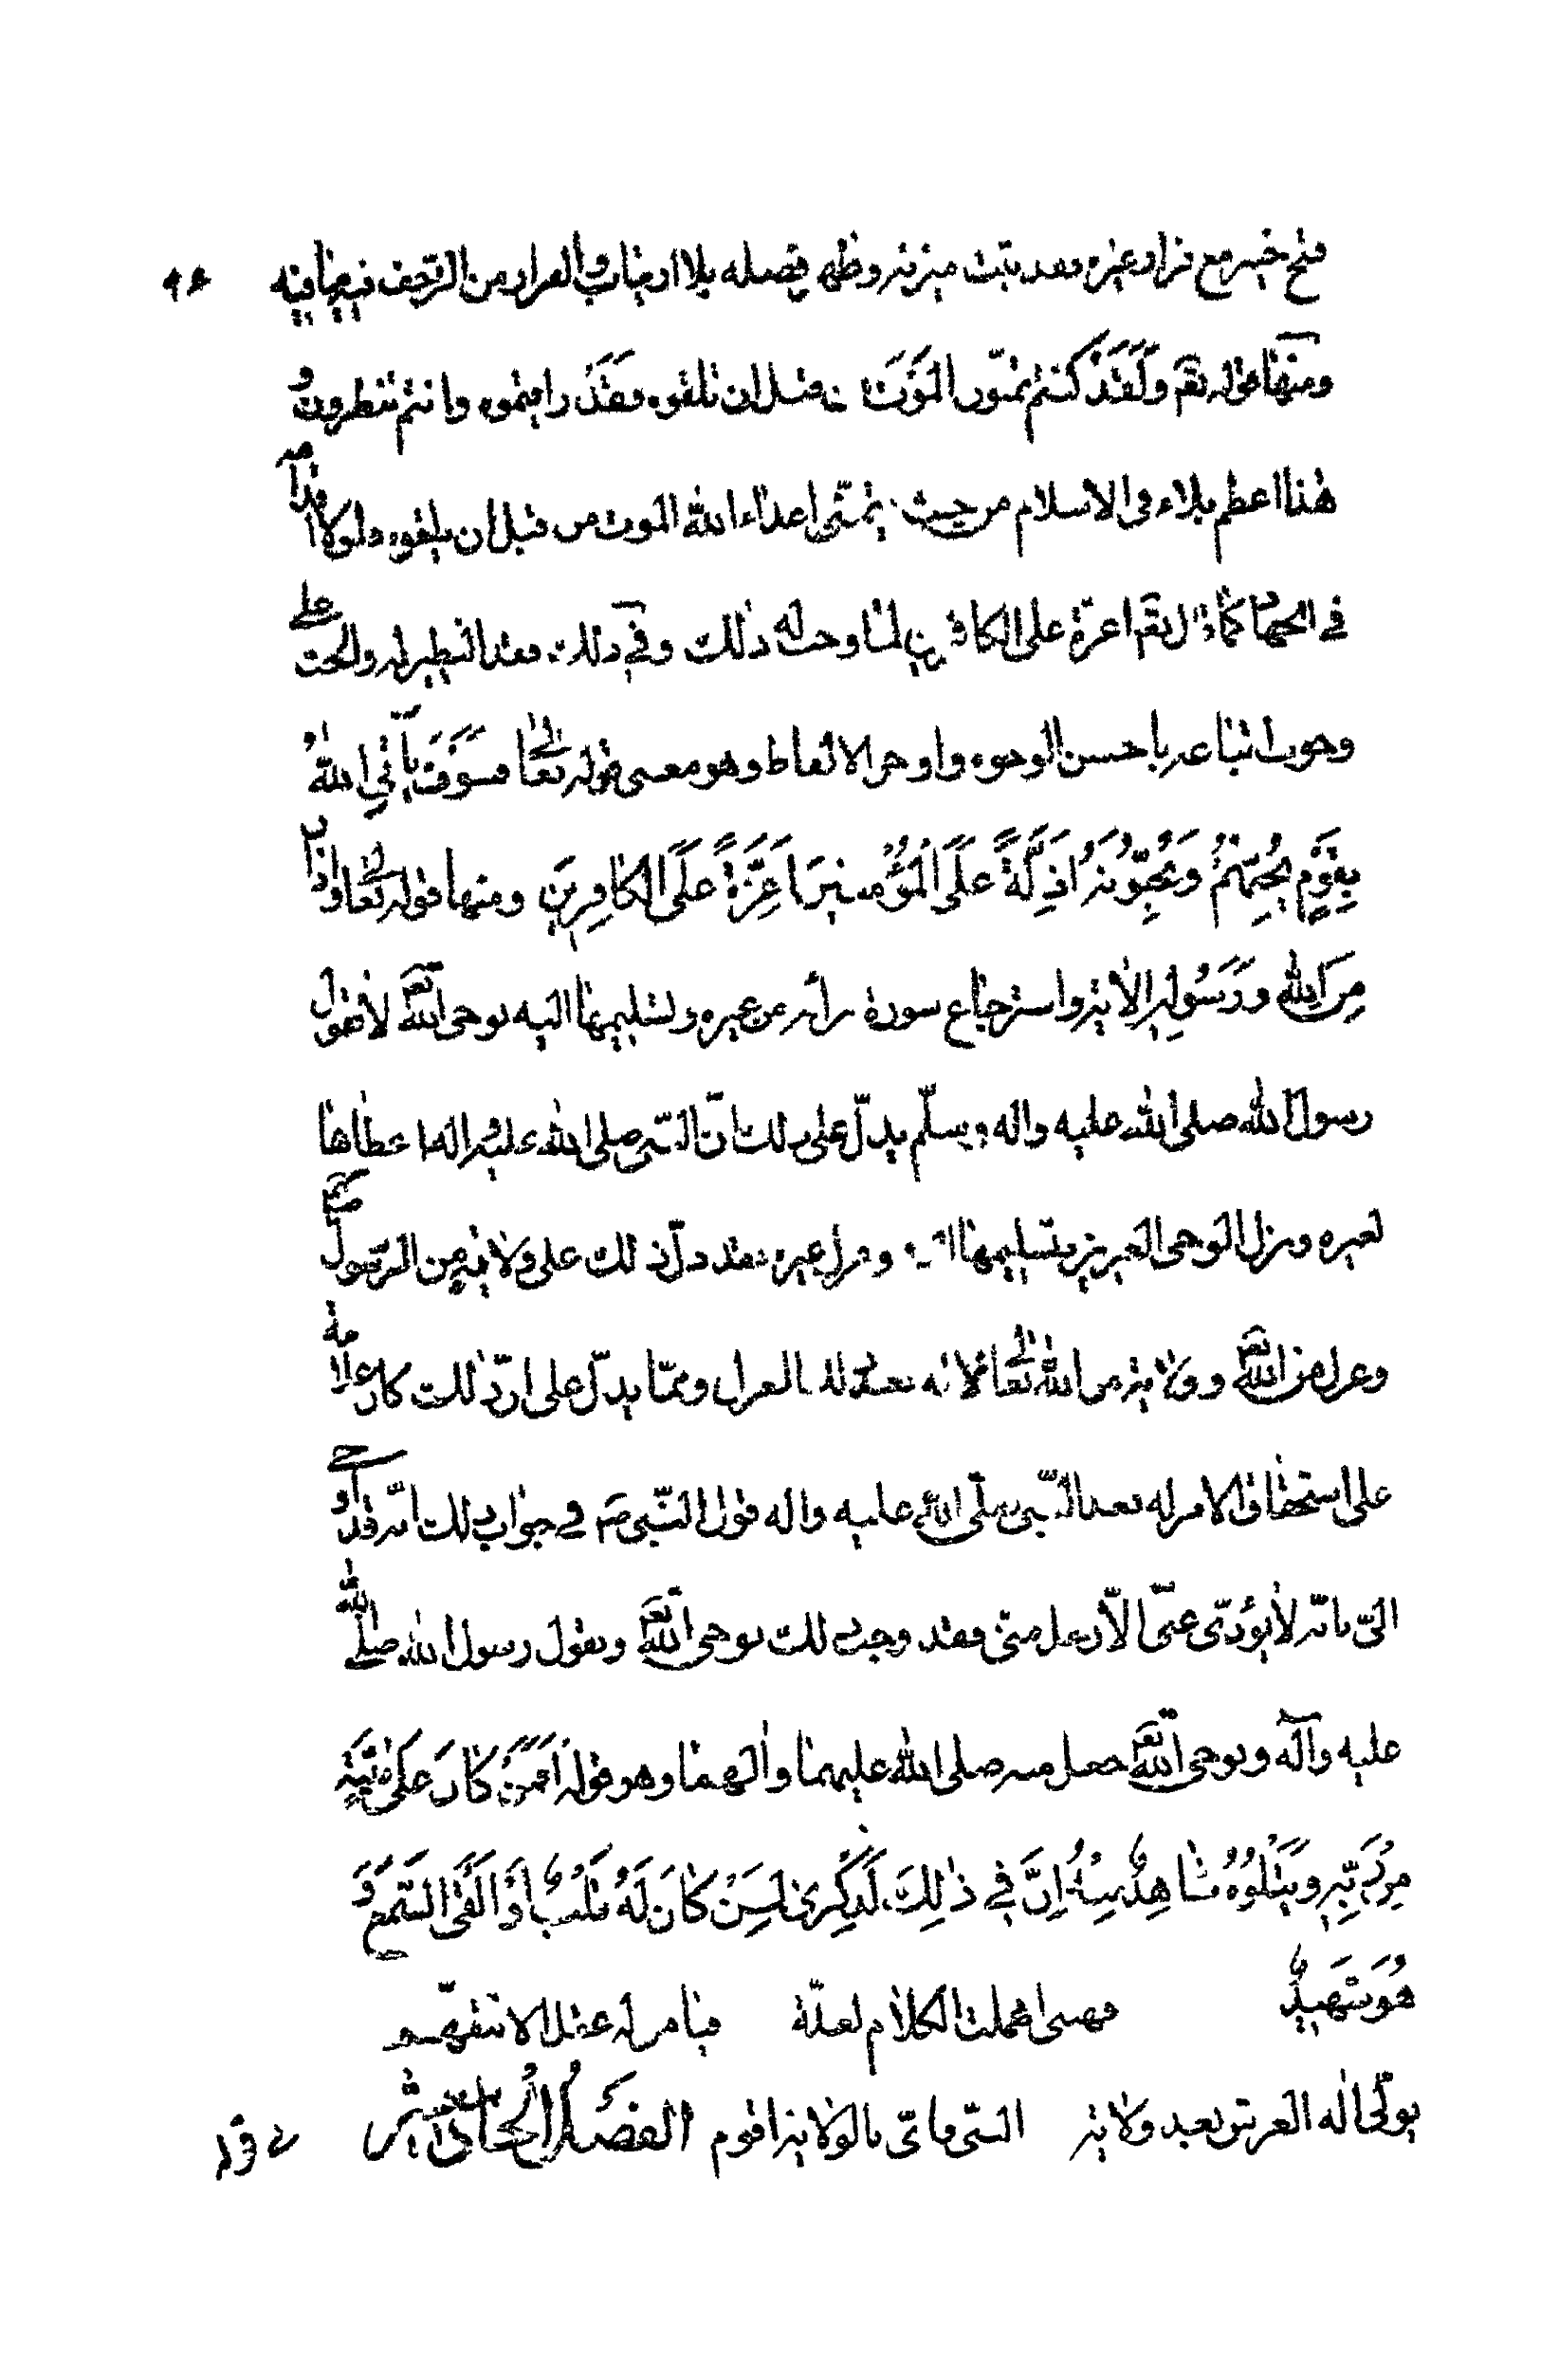 فتح خيبر مع فرار غيره فقد ثبت ميزته وظهر فضله بلا ارتياب والفرار من الزحف فيه ما فيه ٩٤
ومنها قوله تع وَلَقَدْ كنتم تمنون الْمَوْتَ من قبل ان تلقوه فَقَدْ رايتموه وانتم تنظرون
هذا اعظم بلاء فى الاسلام من حيث تمنى اعداء الله الموت من قبل ان يلقوه ولولا اقدامه
في الجهاد كما قال تع اعزة على الكافرين لما وجب له ذلك وفي ذلك فقد النظير له والحث على
وجوب اتباعه باحسن الوجوه واوجز الالفاظ وهو معنى قوله تعالى فَسَوْفَ يَأْتِي اللهُ
بِقَوْمٍ يُحِبُّهُمْ وَيُحِبُّونَهُ أَذِلَّةً عَلَى الْمُؤْمِنِينَ أَعِزَّةً عَلَى الْكَافِرِينَ ومنها قوله تعالى واذان
مِنَ اللهِ وَرَسُولِهِ الآية واسترجاع سورة براءة من غيره وتسليمها اليه بوحى الله تع لا بقول
رسول الله صلى الله عليه واله وسلم يدل على ذلك ان النبى صلى الله عليه واله اعطاها
لغيره ونزل الوحى العزيز بتسليمها اليه وعزل غيره فقد دل ذلك على ولايته من الرسول ص
وعزله من الله تع وولايته من الله تعالى لانه العزل ومما يدل على ان ذلك كان علامة
على استحقاق الامر له بعد النبى صلى الله عليه واله قول النبى ص في جواب ذلك انه قد اوحى
الى بانه لا يؤدى عنى الا رجل منى فقد وجب ذلك بوحى الله تع وبقول رسول الله صلى الله
عليه وآله وبوحى الله تع جعل منه صلى الله عليهما وآلهما وهو قوله أَفَمَنْ كَانَ عَلَى بَيِّنَةٍ
مِنْ رَبِّهِ وَيَتْلُوهُ شَاهِدٌ مِنْهُ إِنَّ فِي ذَلِكَ لَذِكْرَى لِمَنْ كَانَ لَهُ قَلْبٌ أَوْ أَلْقَى السَّمْعَ وَ
هُوَ شَهِيدٌ فهبنى اهملت الكلام لعلة فيا من له عقل الا تتفهم
يولى اله العرش بعد ولاية النبى فاى بالولاية اقوم الفصل الحادى عشر